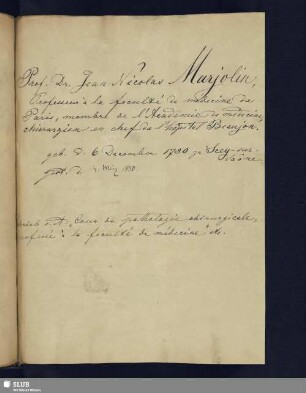 Prof. Dr. Jean Nicolas Marjolin,
Professeur à la faculté de médecine de
Paris, membre de l'Académie de médecine,
chirurgien en chef de l'hôpital Beaujon.
geb. d. 6 December 1780 zu Scey-sur-
Saône
gest. d. 4. März 1850.
"Cours de pathologie chirurgicale,
professé à la faculté de médecine" etc.
SLUB